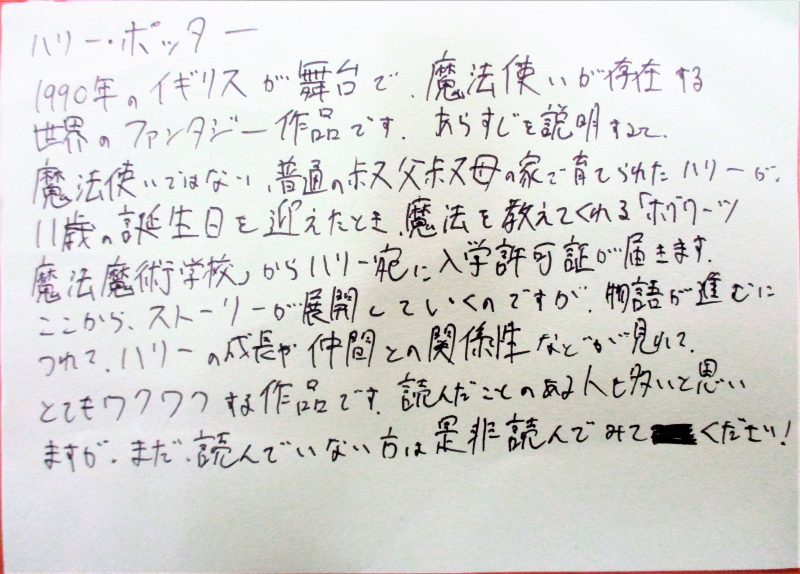 ハリー・ポッター
1990年のイギリスが舞台で、魔法使いが存在する
世界のファンタジー作品です。あらすじを説明すると、
魔法使いではない、普通のオス父オス母の家で育てられたハリーが、
11歳の誕生日を迎えたとき、魔法を教えてくれる「ホグワーツ
魔法魔術学校」からハリー宛に入学許可証が届きます。
ここから、ストーリーが展開していくのですが、物語が進むに
つれて、ハリーの成長や仲間との関係性などが見れて、
とてもワクワクする作品です。読んだことのある人も多いと思い
ますが、まだ、読んでいない方は是非読んでみてください！